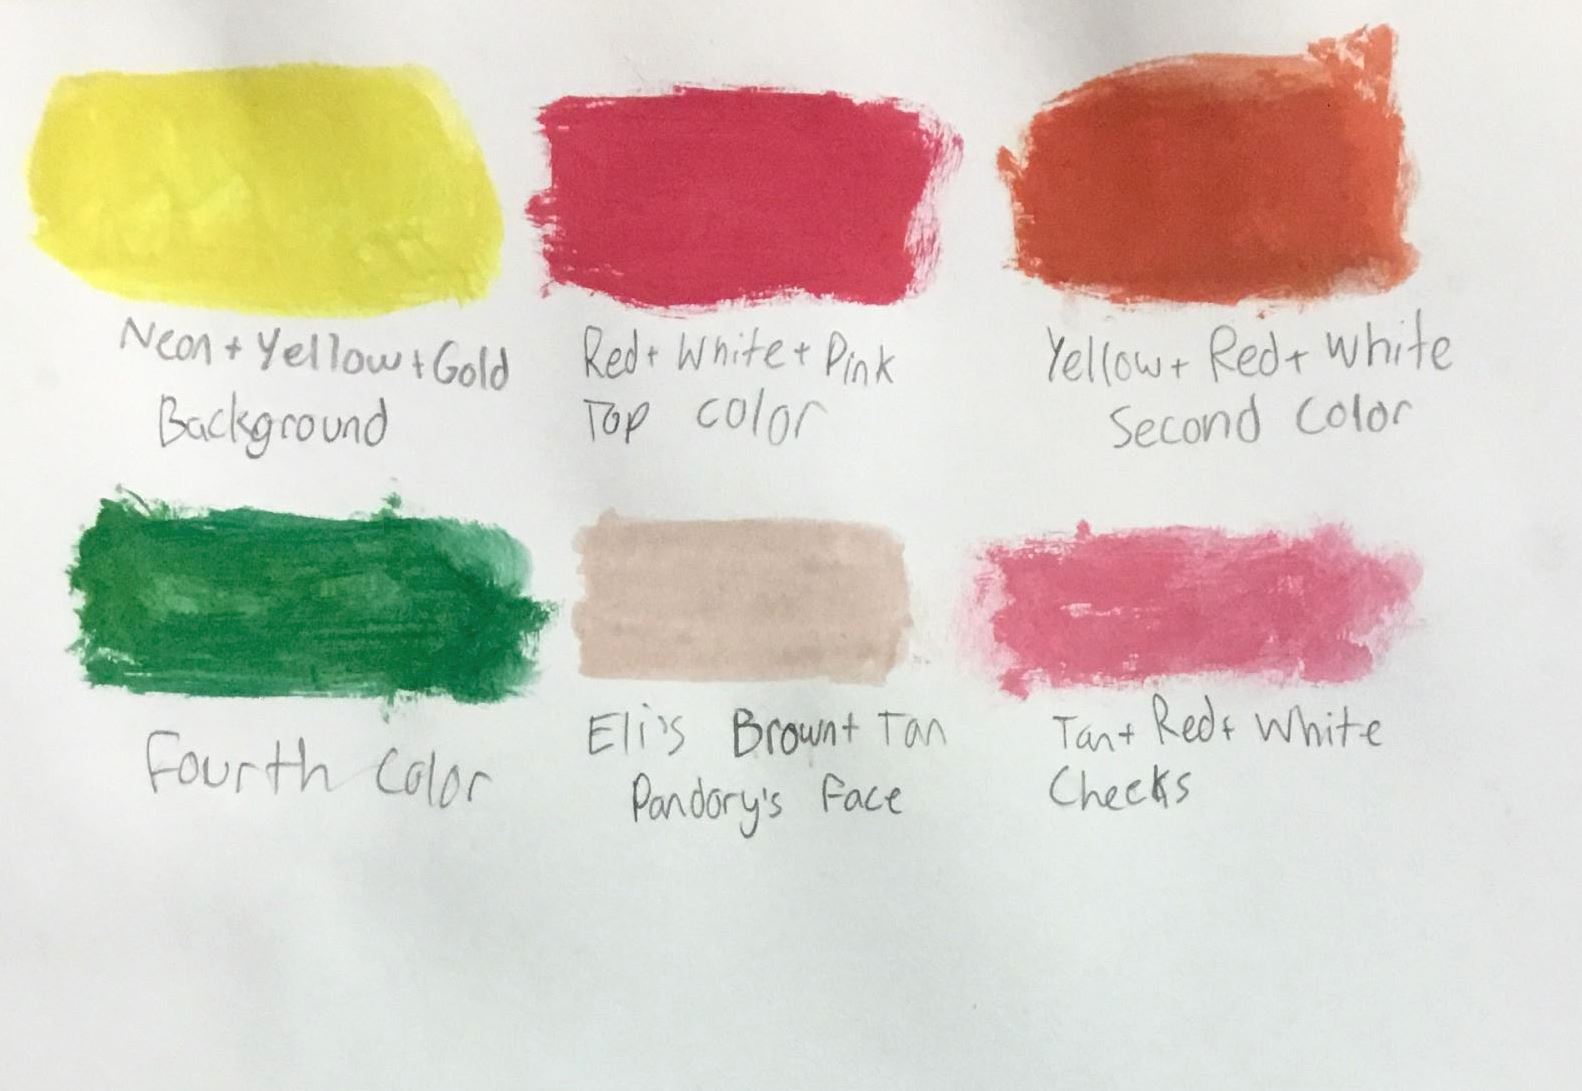 Neon + Yellow + Gold
Background
Red + White + Pink
Top color
Yellow + Red + White
Second Color
Fourth Color
Eli's Brown + Tan
Pandory's Face
Tan + Red + White
Cheeks